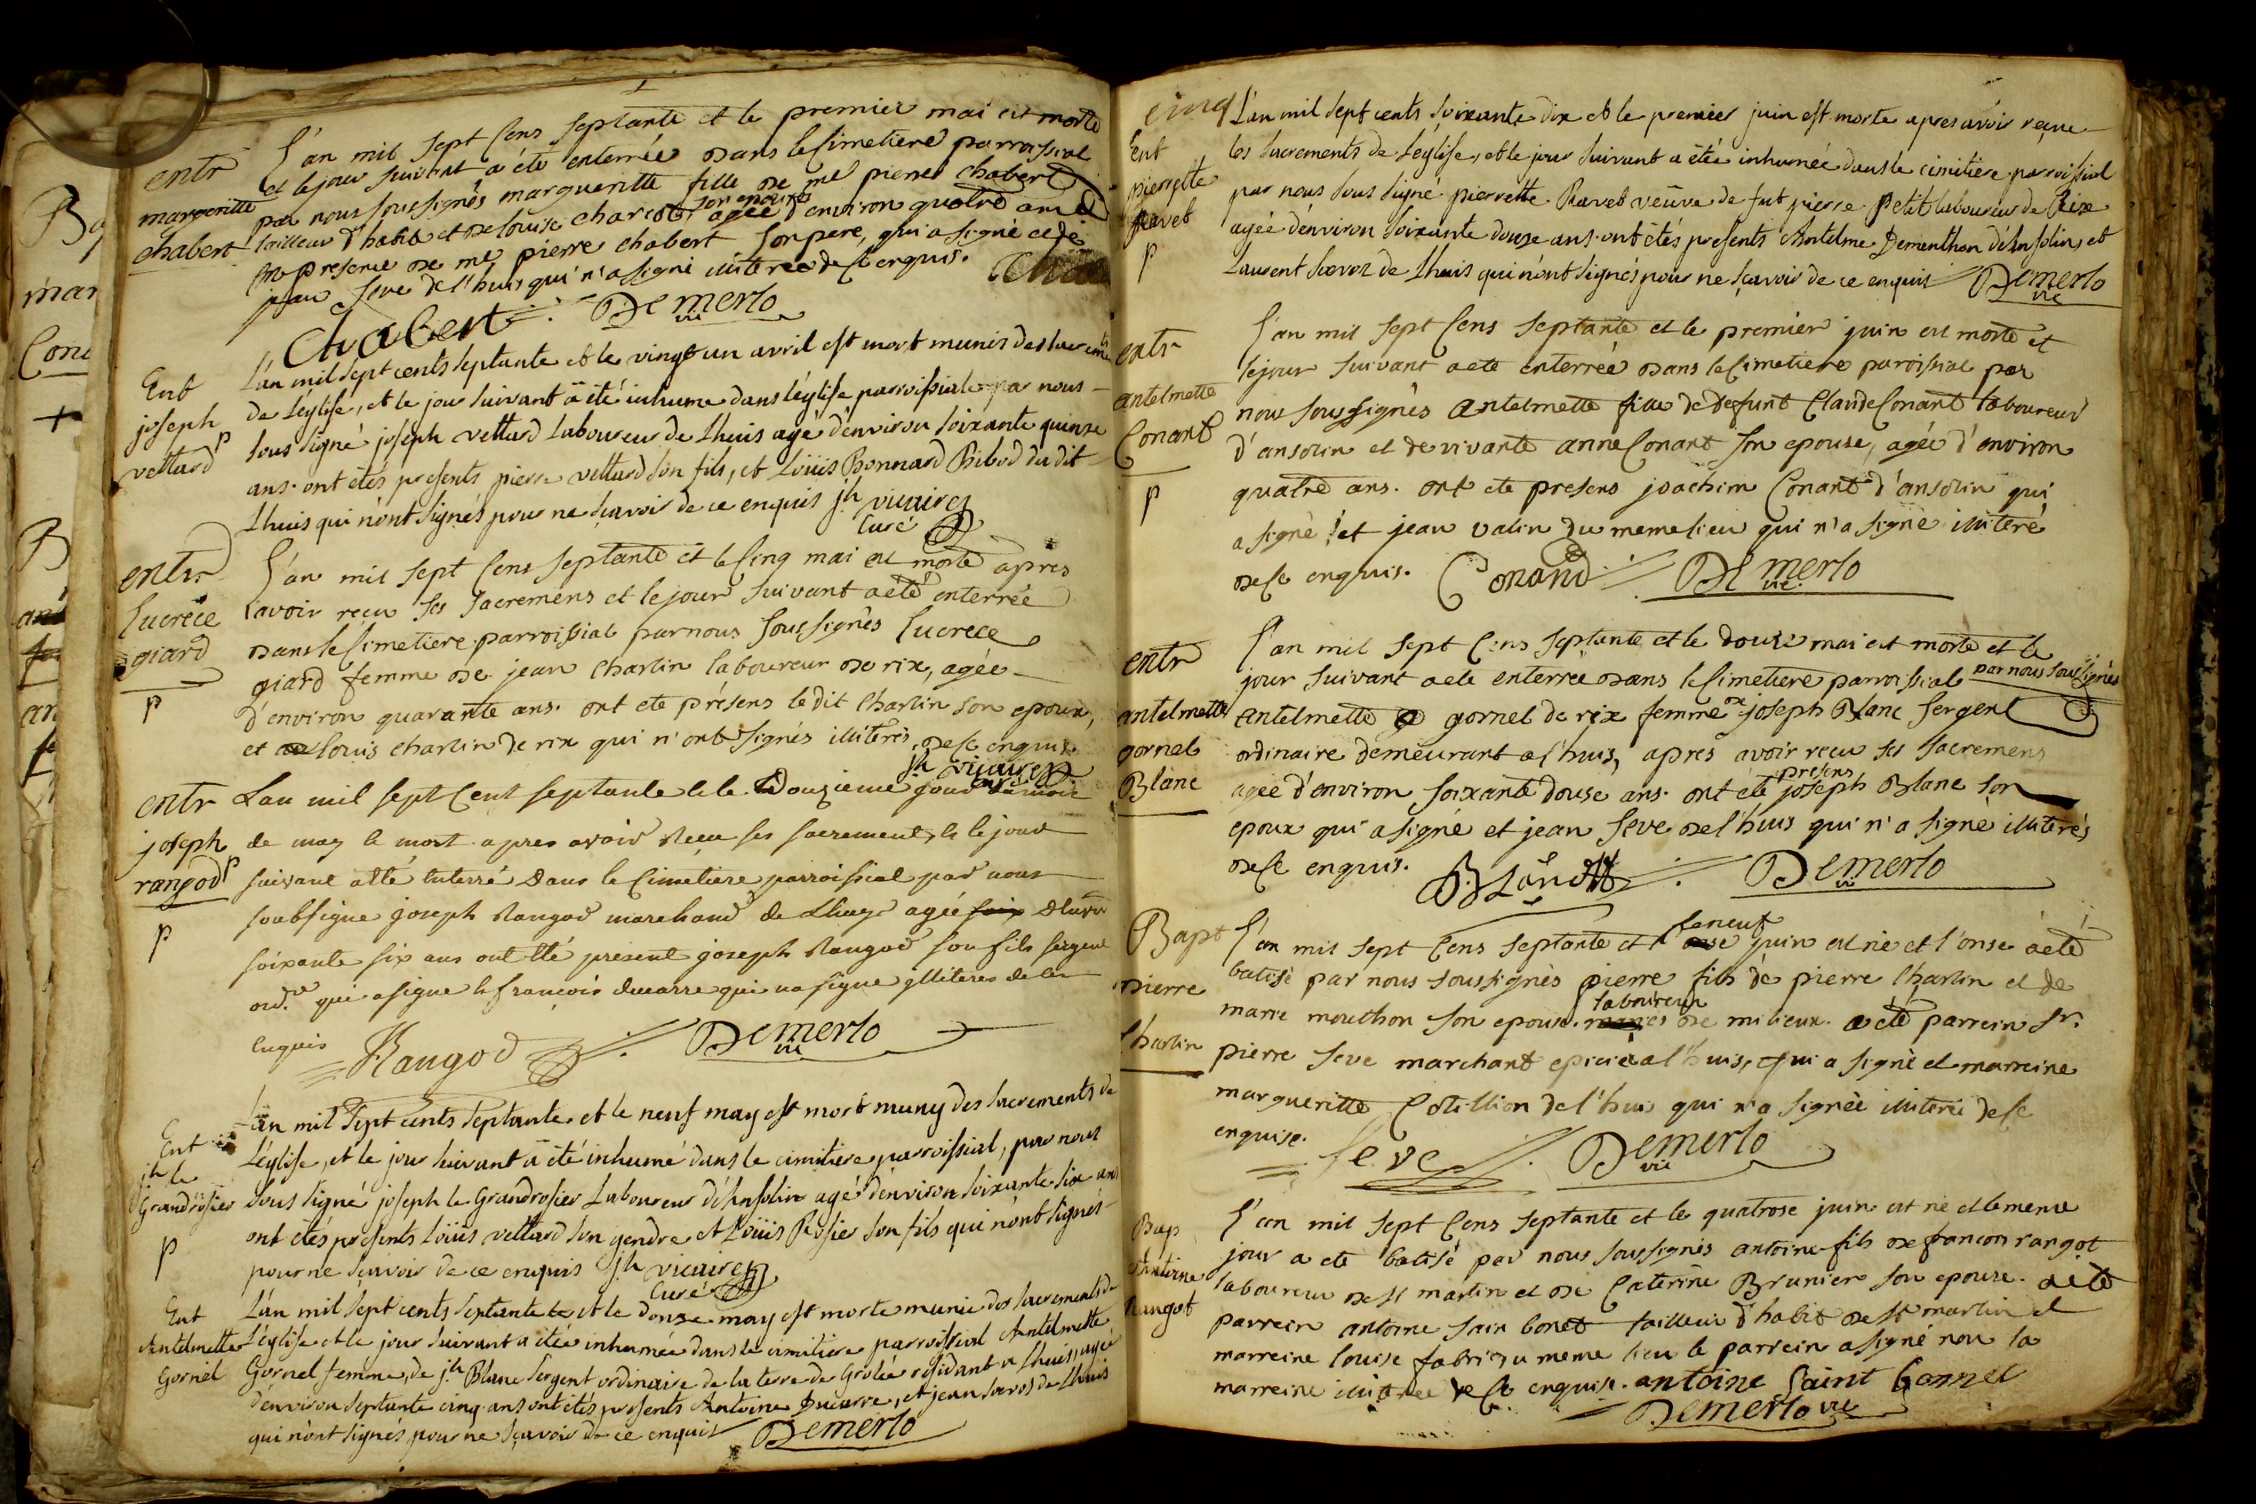 L'an mil sept cens septante et le premier mai est morte
entr
et le jour suivant a été enterrée dans le cimetiere parroissial
margeritte
par nous soussignés margueritte fille de me pierre chabert
chabert
tailleur d'habit et de louise charcot son epouse agée d'environ quatre ans
presence de me pierre chabert son pere, qui a signé et de
jean seve de l'huis qui n'a signé illiteré de ce enquis.
Chabert Demerlo vic
L'an mil sept cents septante et le vingt un avril est mort munis des sacrem
Ent
joseph
vettard
p
de L'église, et le jour suivant a été inhumé dans l'église parroissiale par nous
sous signé joseph vettard Laboureur de Lhuis agé d'environ soixante quinze
ans. ont étés présents pierre vettard son fils, et Loüis Bonnard Bibod du dit
Lhuis qui n'ont signés pour ne sçavoir de ce enquis jh vicaire
Curé
entr
Lucrece
giard
p
L'an mil sept cens septante et le cinq mai est morte apres
avoir reçu ses sacremens et le jour suivant a été enterrée
dans le cimetiere parroissial par nous soussignés Lucrece
giard femme de jean charlin laboureur de rix, agée
d'environ quarante ans. ont ete présens le dit charlin son epoux,
et louis charlin de rix qui n'ont signés illiterés de ce enquis.
jh vicaire
curé
entr
joseph
rangod
p
Lan mil sept cent septante et le douzieme jour
de may est mort apres avoir receu ses sacrements et le jour
suivant a été enterré dans le cimetiere parroissial par nous
soubsigne joseph Rangod marchand de Lhuys agée
soixante six ans ont été present joseph Rangod son fils sergent
ord.re qui a signe et francois ducarre qui na signe illiteres de ce
enquis Rangod Demerlo vic
L'an mil sept cents septante et le neuf may est mort muny des sacrements de
Ent
jh le
Grandrosier
p
L'église, et le jour suivant a été inhumé dans le cimitiere parroissial, par nous
sous signé joseph le Grandrosier Laboureur d'Ansolin agé d'environ soixante six ans
ont étés présents Loüis vettard son gendre et Loüis Rosier son fils qui n'ont signés
pour ne sçavoir de ce enquis jh vicaire
Curé
Ent
Antelmette
Gornel
L'an mil sept cents septante et le douze may est morte munie des sacrements de
L'église et le jour suivant a étée inhumée dans le cimitiere parroissial Antelmette
Gornel femme de jh Blanc Sergent ordinaire de la terre de Grolée résidant a Lhuis, agée
d'environ septante cinq ans ont étés présents Antoine Ducarre, et jean Sarvoz de Lhuis
qui n'ont signés pour ne sçavoir de ce enquis Demerlo
cinq
Ent
pierrette
Ravet
p
L'an mil sept cents soixante dix et le premier juin est morte apres avoir reçue
les sacrements de L'église, et le jour suivant a étée inhumée dans le cimitiere parroissial
par nous sous signé pierrette Ravet veüve de fut pierre Petit laboureur de Rix
agée d'environ soixante douze ans. ont étés présents Antelme Dementhon d'Ansolin, et
Laurent Sarvoz de Lhuis qui n'ont signés pour ne sçavoir de ce enquis Demerlo
vic
entr
antelmette
Conant
p
L'an mil sept cens septante et le premier juin est morte et
le jour suivant a ete enterrée dans le cimetiere paroissial par
nous soussignés antelmette fille de defunt Claude Conant laboureur
d'ansolin et de vivante anne Conant son epouse, agée d'environ
quatre ans. ont ete presens joachim Conant d'ansolin qui
a signé et jean valin du meme lieu qui n'a signé illiteré
de ce enquis. Conand Demerlo
vic
entr
antelmette
gornel
Blanc
L'an mil sept cens septante et le douze mai est morte et le
jour suivant a ete enterrée dans le cimetiere parroissial par nous soussignés
antelmette gornel de rix femme de joseph Blanc sergent
ordinaire demeurant a l'huis, apres avoir recu ses sacremens
agée d'environ soixante douse ans. ont été presens joseph Blanc son
epoux qui a signé et jean seve de l'huis qui n'a signé illiterés
de ce enquis. Blanc Demerlo
vic
Bapt
pierre
Charlin
L'an mil sept cens septante et le neuf juin est né et l'onse a été
batisé par nous soussignés pierre fils de pierre Charlin et de
marie mouthon son epouse. laboureur de milieux. a été parrein Sr.
pierre seve marchant epicié a l'huis, qui a signé et marreine
margueritte Cotillion de l'huis qui n'a signée illiterée de ce
enquise. Seve Demerlo
vic
Bap
Antoine
Rangot
L'an mil sept cens septante et le quatrose juin est né et le meme
jour a ete batisé par nous soussignés antoine fils de francon rangot
laboureur de st martin et de Caterine Brunier son epouse. a été
parrein antoine sain bonet tailleur d'habit de st martin et
marreine louise fabri du meme lieu le parrein a signé non la
marreine illiterée de ce enquise. antoine Saint bonnet
Demerlo vic